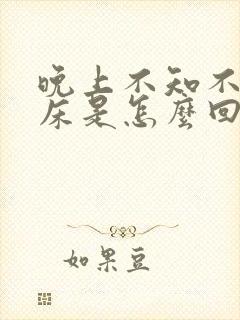 晚上不知不
床是怎麼回
如果豆